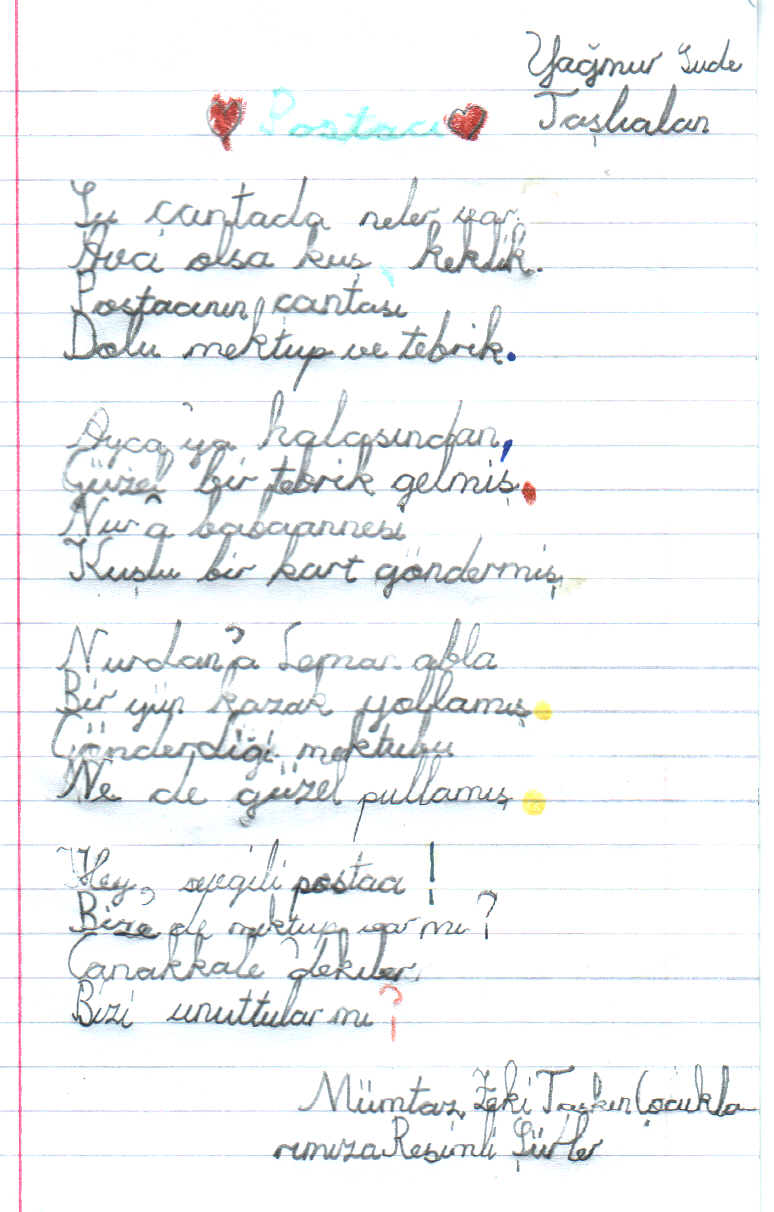 Yağmur Sude
Taşkalan
Postacı
Şu çantada neler var.
Avcı olsa kuş, keklik.
Postacının çantası
Dolu mektup ve tebrik.
Ayça'ya halasından,
Güzel bir tebrik gelmiş.
Nur'a babaannesi
Kuşlu bir kart göndermiş,
Nurdan'a Leman abla
Bir yün kazak yollamış.
Gönderdiği mektubu
Ne de güzel pullamış.
Hey, sevgili postacı!
Bize de mektup var mı?
Çanakkale'dekiler,
Bizi unuttular mı?
Mümtaz Zeki Taşkın Çocukla
rımıza Resimli Şiirler